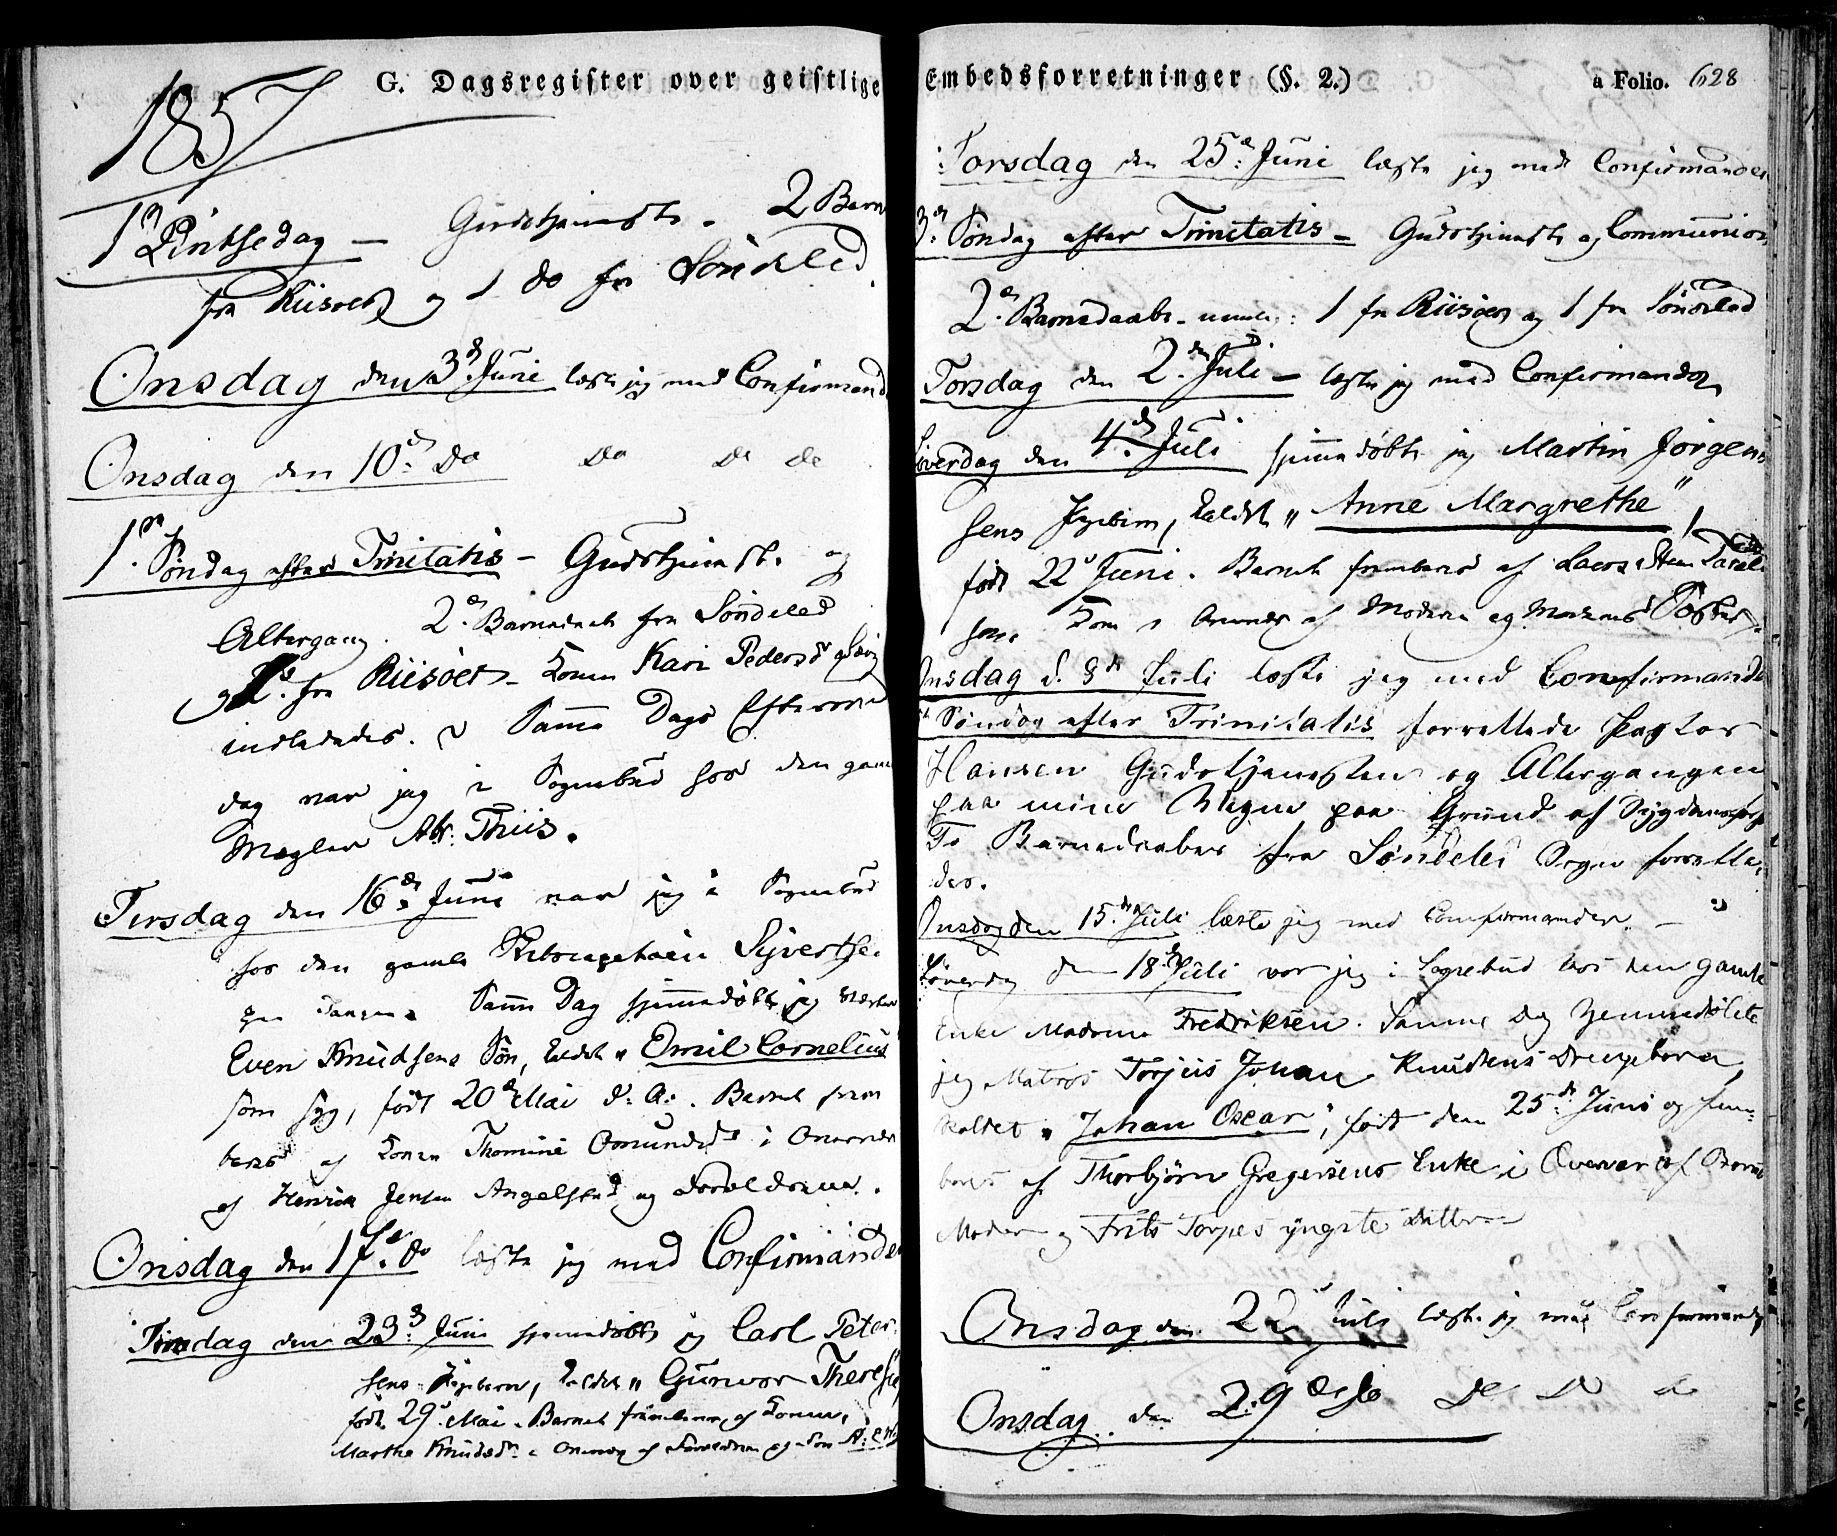 G. Dagsregister over geistlige
1857
1ste Pintsedag – Gudstjeneste. 2 Barn
fra Riisoer og 1 do fra Söndeled.
Onsdag den 3d. Juni læste jeg med Confirmand
Onsdag den 10d. Do Do Do Do
1ste Söndag after Trinitatis – Gudstjeneste og
Altergang. 2de Barnedaab fra Söndeled
og fra Riisöer – Konen Kari Pedersd
indlededes. Samme Dags Efterm
dag var jeg i Sognebud hos den gam
Mægler Ab. Thiis.
Tirsdag den 16d. Juni var jeg i Sognebud
hos den gamle Sivertse
paa Tangen. Samme Dag hjemmedøbte jeg
Even Knudsens Sön, kaldet „Emil Cornelius"
som syg, födt 20d Mai d. A. Barnet frem
bares af Konen Thomine Omundsd i Overvær
af Henrik Jensen Angelstad og Forældrene.
Onsdag den 17d. do læste jeg med Confirmande
Tirsdag den 23d Juni hjemmedøbte jeg Carl Peter
sens Pigebarn, kaldet „Gunvor Therese
födt 29d. Mai. Barnet frembaaren af Konen,
Marthe Knudsd. i Overvær af Forældrene og
Embedsforretninger (§. 2.)
a Folio. 628
Torsdag den 25d. Juni læste jeg med Confirmander
3d. Söndag after Trinitatis – Gudstjeneste og Communion
2de Barnedaabe – neml: 1 fra Riisöer og 1 fra Sönded
Torsdag den 2den Juli – læste jeg med Confirmander
Löverdag den 4d. Juli hjemmedøbte jeg Martin Jörgen
sens Pigebarn, kaldet „Anne Margrethe"
født 22d Juni. Barnet frembares af
Kone i Overvær af Moderen og Moderens Søster
Onsdag d. 8de Juli læste jeg med Confirmande
Söndag after Trinitatis forrettede Pastor
Hansen Gudstjenesten og Altergangen
paa mine Vegne paa Grund af Sygdomsfor
To Barnedaaber fra Söndeled Sogn forrette-
des.
Onsdag den 15.de Juli læste jeg med Confirmander. –
Löverdag den 18de Juli var jeg i Sognebud hos den gamle
Enke Madame Fredriksen. Samme Dag hjemmedöbte
jeg Matros Torjus Johan Knudsens Drengebarn,
kaldet „Johan Oscar", födt den 25de Juni og frem-
bares af Thorbjörn Gregersens Enke i Overvær af Barnets
Moder og Frits Torjes yngste Datter
Onsdag den 22d Juli læste jeg med Confirmande
Onsdag den 29de do Do Do do